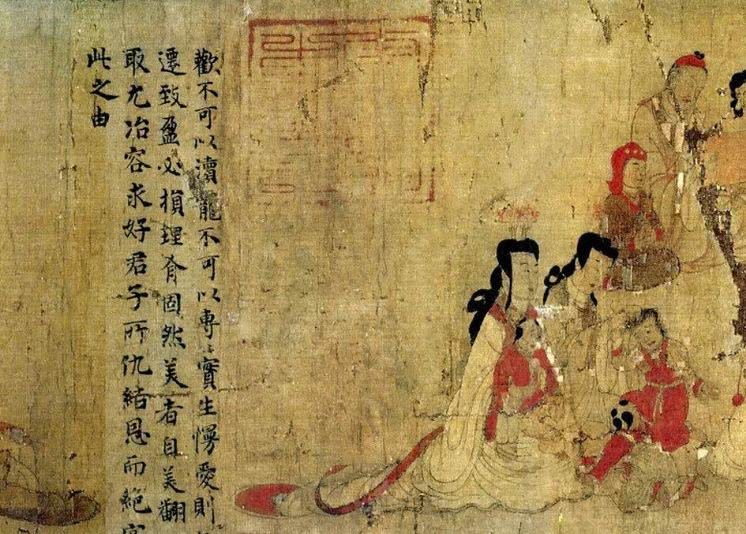 歡不可以瀆寵不可以專〻實生慢愛則
遷致盈必損理有固然美者自美翩
取尤冶容求好君子所仇結恩而絕
此之由